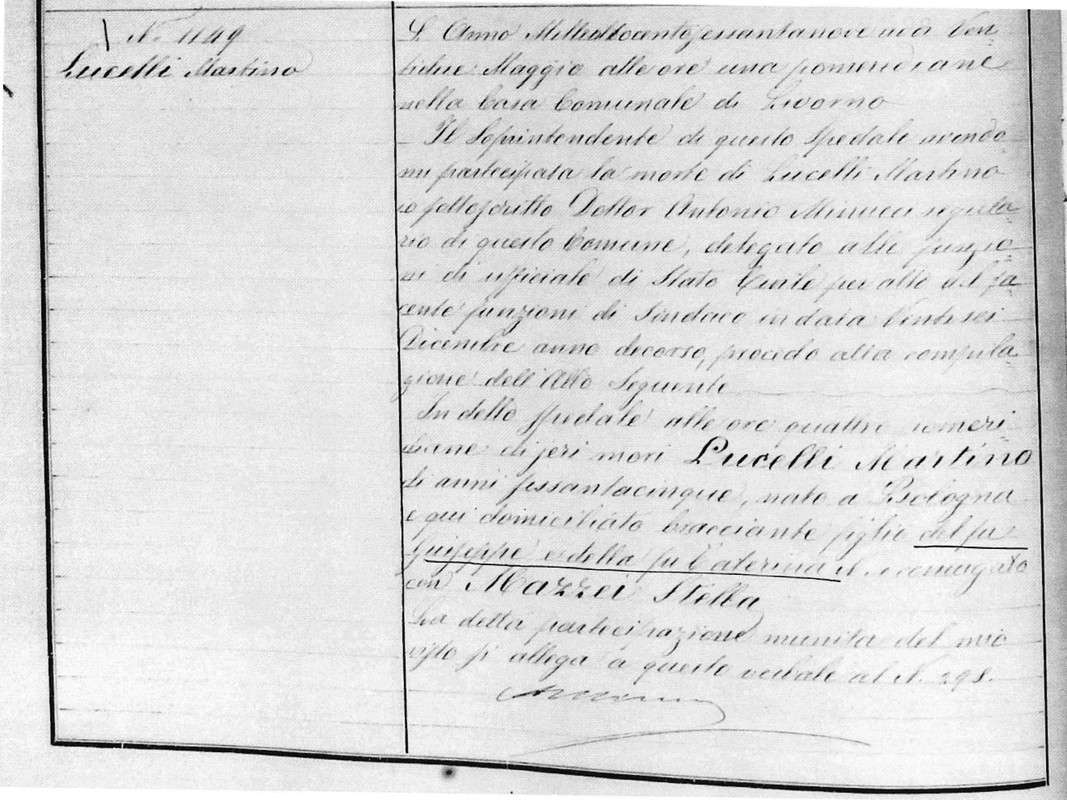 N. 1149
Lucelli Martino
L'Anno Milleottocentosessantanove a di Ven
tidue Maggio alle ore una pomeridiane
nella Casa Comunale di Livorno
Il Soprintendente di questo Spedale avendo
mi partecipata la morte di Lucelli Martino
io sottoscritto Dottor Antonio Minucci segreta
rio di questo Comune, delegato alle funzio
ni di ufficiale di Stato Civile per atto del fa
cente funzioni di Sindaco in data Ventisei
Dicembre anno decorso, procedo alla compila
zione dell'Atto Seguente
In detto Spedale alle ore quattro pomeri
diane di jeri morì Lucelli Martino
di anni sessantacinque, nato a Bologna
e qui domiciliato bracciante figlio del fu
Giuseppe e della fu Caterina coniugato
con Mazzei Stella
La detta partecipazione munita del mio
visto si allega a questo verbale al N. 298.